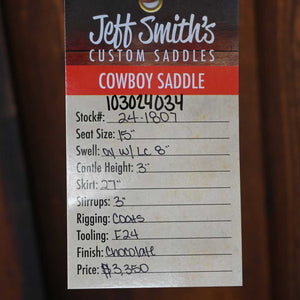 Jeff Smith's
CUSTOM SADDLES
COWBOY SADDLE
103024034
Stock#: 24-1807
Seat Size: 15"
Swell: OY W/ LC 8"
Cantle Height: 3"
Skirt: 27"
Stirrups: 3"
Rigging: Coats
Tooling: E24
Finish: Chocolate
Price: $3,350